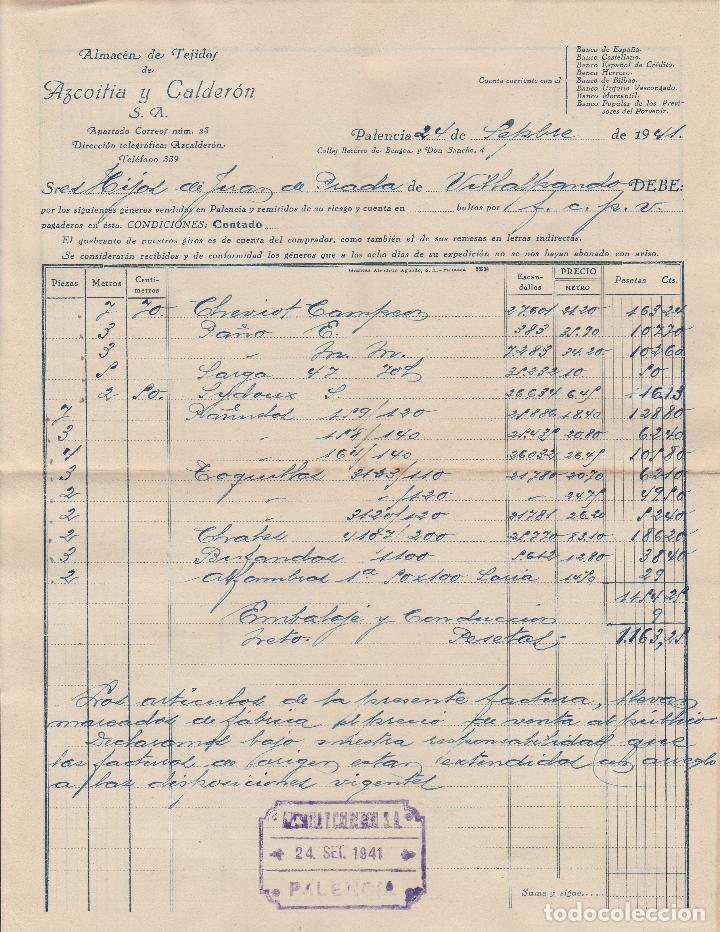 Almacén de Tejidos
de
Azcoitia y Calderón
S. A.
Apartado Correos núm. 23
Dirección telegráfica: Azcalderón
Teléfono 339
Cuenta corriente con el
Banco de España.
Banco Castellano.
Banco Español de Crédito.
Banco Herrero.
Banco de Bilbao.
Banco Urquijo Vascongado.
Banco Mercantil.
Banco Popular de los Previsores del Porvenir.
Palencia 24 de Sepbre de 1941.
Calles Becerro de Bengoa y Don Sancho, 4
Sres Hijos de Juan de Prada de Villalpando DEBE:
por los siguientes géneros vendidos en Palencia y remitidos de su riesgo y cuenta en bultos por f. c. p. v.
pagaderos en ésta. CONDICIONES: Contado
El quebranto de nuestros giros es de cuenta del comprador, como también el de sus remesas en letras indirectas.
Se considerarán recibidos y de conformidad los géneros que a los ocho días de su expedición no se nos hayan abonado con aviso.
Piezas Metros Centímetros Escandallos PRECIO NETRO Pesetas Cts.
7 70 Cheviot Campeon 27.601 21.20 163 24
3 Paño E. 383 35.90 107 70
3 " M. M. 7.283 34.20 102 60
5 Sarga 47 70% 25.232 10 50
2 50 Sydoux S. 26.634 6.45 16 13
7 Pañuelos 159/120 25.886 18.40 128 80
3 " 158/140 20.80 62 40
4 " 164/140 26032 26.45 105 80
3 Toquillas 3123/110 21780 20.70 62 10
2 " "/120 " 24.75 49 50
2 3120/120 21.781 26.20 52 40
2 Chales 4187/200 25.770 93.10 186 20
3 Bufandas 1100 5.612 12.80 38 40
2 Alfombras 1ª 50x100 Soria 14.50 29
1154 25
Embalaje y Conduccion 9
Neto Pesetas 1.163,25
Los articulos de la presente factura, llevan
marcados de fábrica el precio de venta al público
Declaramos bajo nuestra responsabilidad que
las facturas de origen estan extendidas con arreglo
a las disposiciones vigentes
AZCOITIA Y CALDERON S.A.
24. SET. 1941
PALENCIA
Suma y sigue
todocoleccion
todocoleccion.net